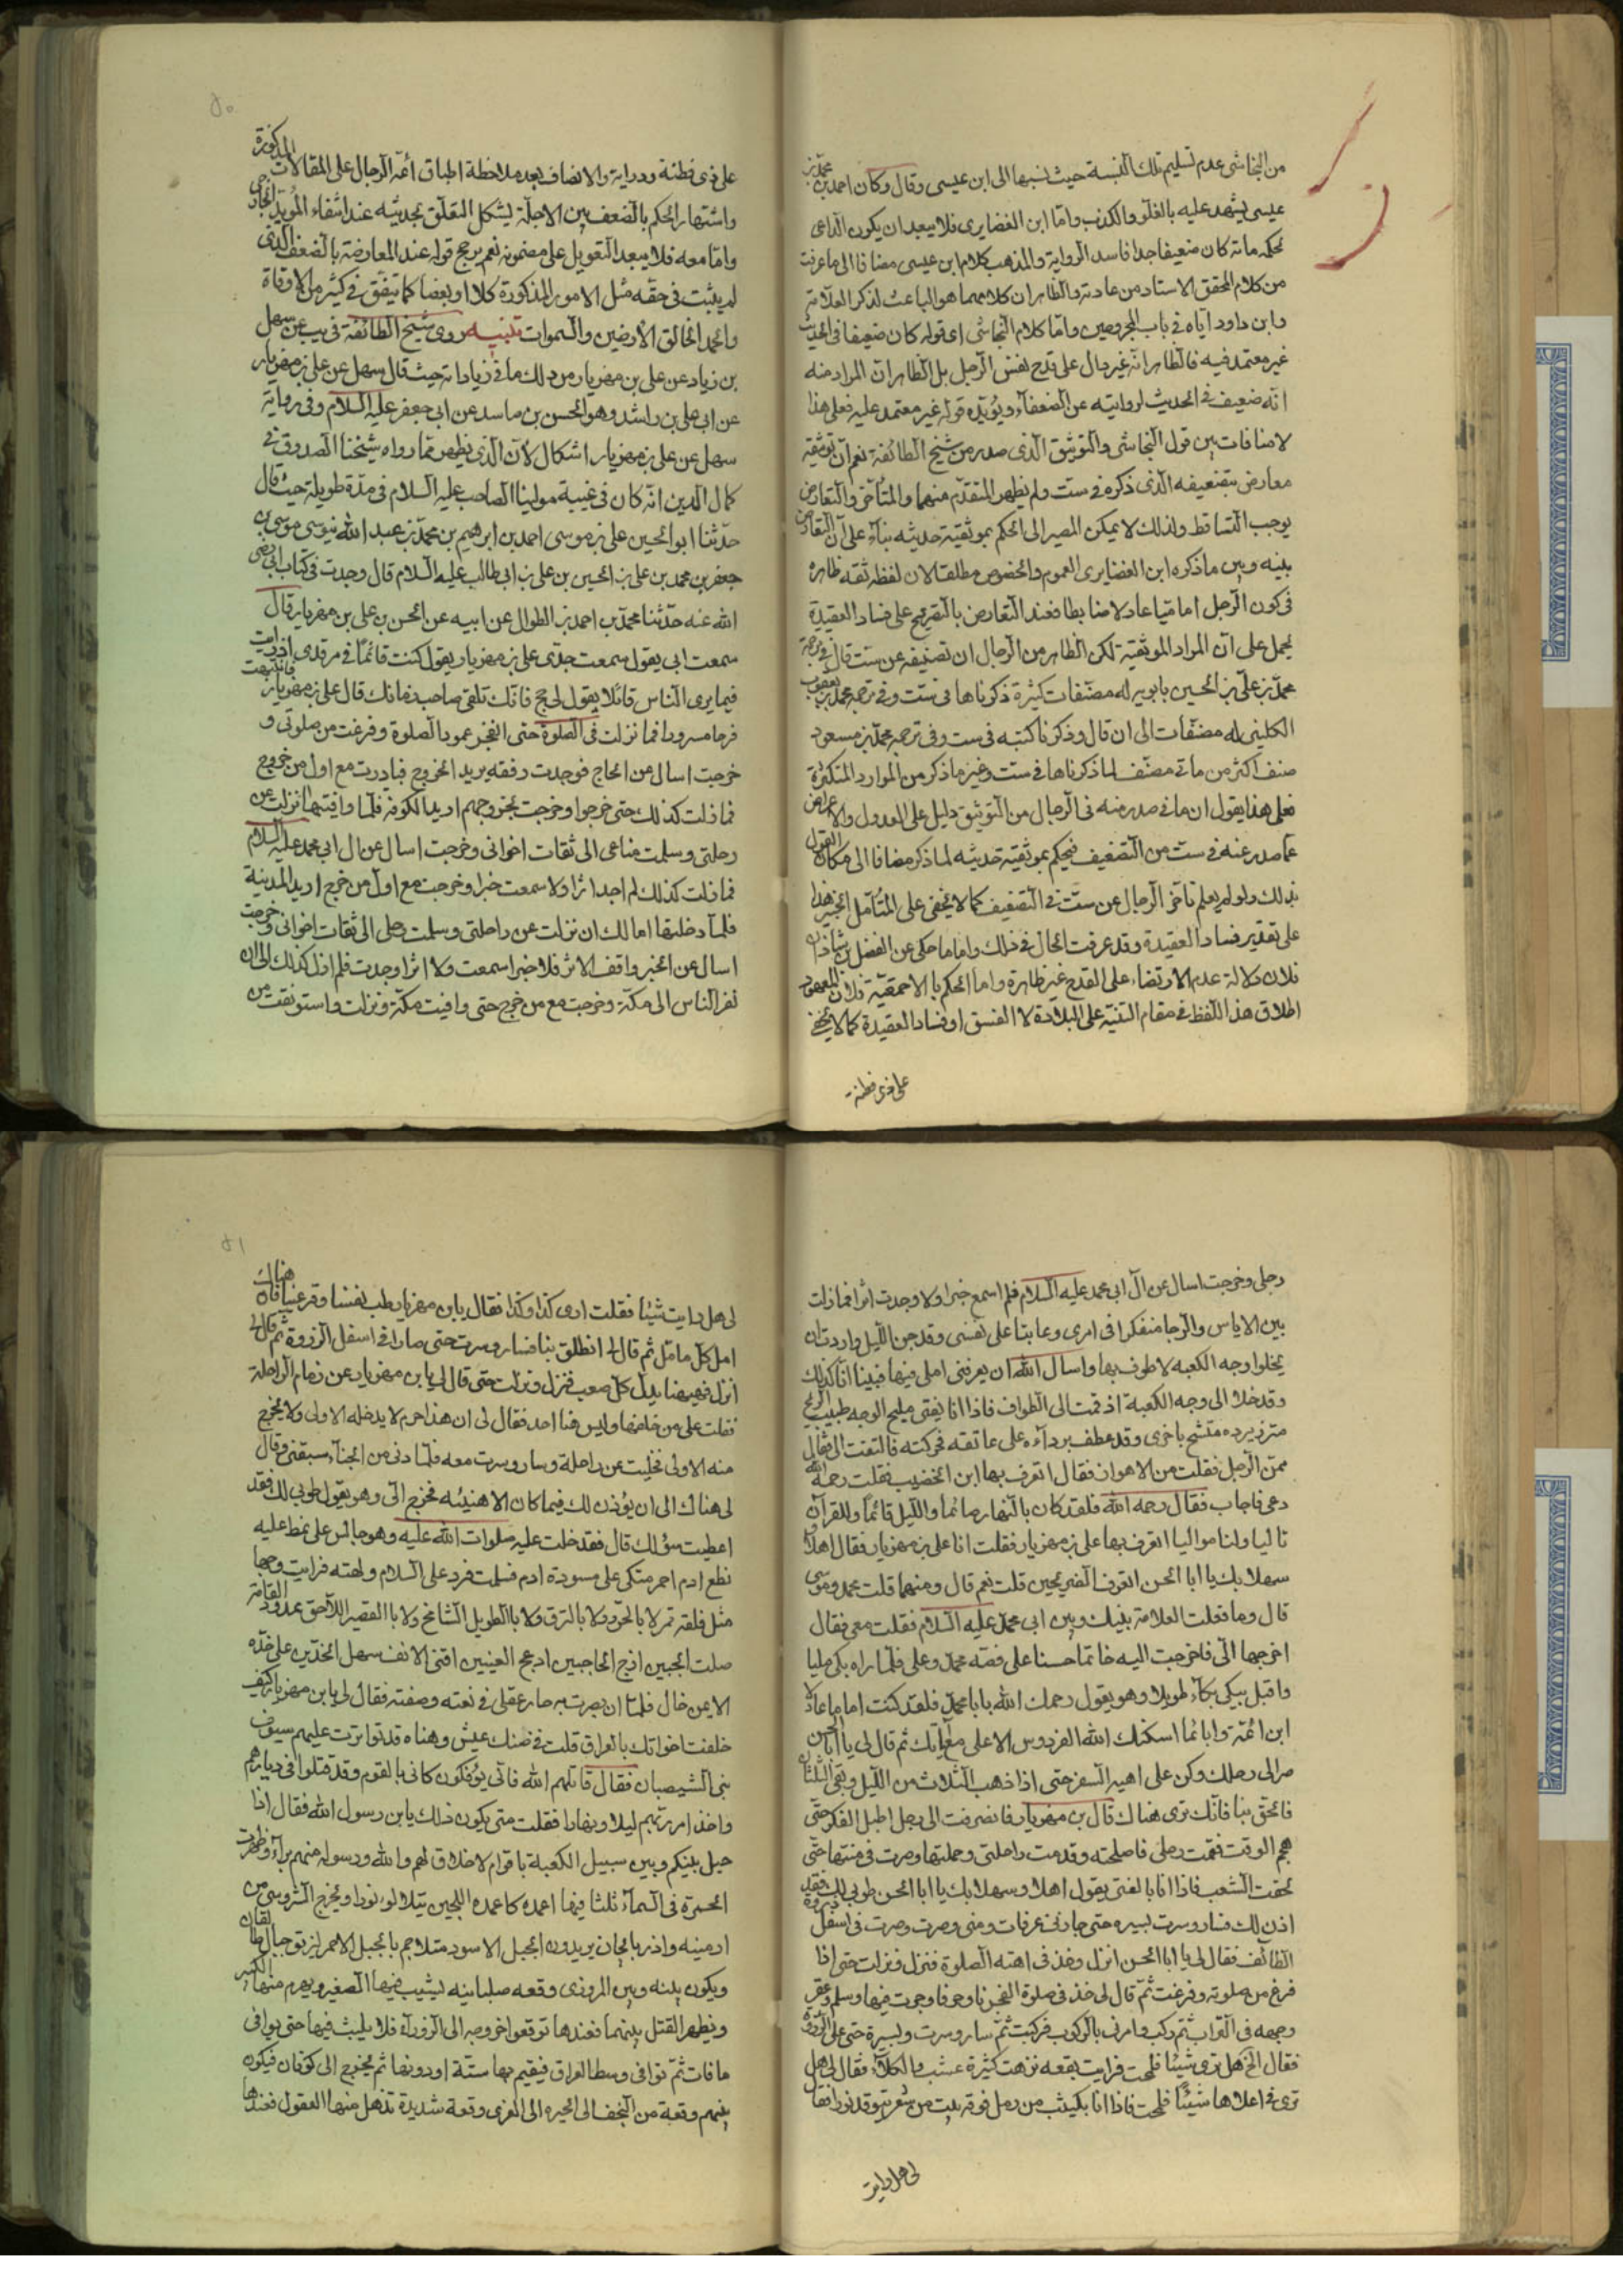 من النجاشی عدم تسلیم تلک النسبة حیث نسبها الی ابن عیسی وقال وکان احمد بن محمد بن
عیسی یشهد علیه بالغلو والکذب واما ابن الغضایری فلا یبعد ان یکون الداعی
لحکمه بانه کان ضعیفا جدا فاسد الروایة والمذهب کلام ابن عیسی مضافا الی ما عرفت
من کلام المحقق الاستاد من عادته والظاهر ان کلامهما هو الباعث لذکر العلامة
وابن داود ایاه فی باب المجروحین واما کلام النجاشی اعنی قوله کان ضعیفا فی الحدیث
غیر معتمد فیه فالظاهر انه غیر دال علی قدح نفس الرجل بل الظاهر ان المراد منه
انه ضعیف فی الحدیث لروایته عن الضعفاء ویؤیده قوله غیر معتمد علیه فعلی هذا
لا منافات بین قول النجاشی والتوثیق الذی صدر من شیخ الطائفة نعم ان توثیقه
معارض بتضعیفه الذی ذکره فی ست ولم یظهر المتقدم منهما والمتأخر والتعارض
یوجب التساقط ولذلک لا یمکن المصیر الی الحکم بموثقیة حدیثه بناء علی ان التعارض
بینه وبین ما ذکره ابن الغضایری العموم والخصوص مطلقا لان لفظ ثقه ظاهره
فی کون الرجل امامیا عادلا ضابطا فعند التعارض بالتصریح علی فساد العقیدة
یحمل علی ان المراد الموثقیه لکن الظاهر من الرجال ان تصنیفه عن ست قال فی ترجمة
محمد بن علی بن الحسین بابویه له مصنفات کثیرة ذکرناها فی ست وفی ترجمه محمد بن یعقوب
الکلینی له مصنفات الی ان قال وذکرنا کتبه فی ست وفی ترجمه محمد بن مسعود
صنف اکثر من ماتی مصنف لما ذکرناها فی ست وغیر ما ذکر من الموارد المتکثرة
فعلی هذا یقول ان ما فی صدر منه فی الرجال من التوثیق دلیل علی العدول والاعراض
عما صدر عنه فی ست من التضعیف فیحکم بموثقیة حدیثه لما ذکر مضافا الی مکان القول
بذلک ولو لم یعلم تأخر الرجال عن ست فی التضعیف کما لا یخفی علی المتأمل الخبیر هذا
علی تقدیر فساد العقیدة وقد عرفت الحال فی ذلک واما ما حکی عن الفضل بن شاذان
فلان دلالة عدم الارتضاء علی القدح غیر ظاهرة واما الحکم بالاحمقیة فلان المعهود
اطلاق هذا اللفظ فی مقام التنبیه علی البلادة لا الفسق او فساد العقیدة کما لا یخفی
علی ذی فطنة
علی ذی فطنة ودرایة والانصاف بعد ملاحظة اطباق أئمة الرجال علی المقالات المذکورة
واشتهار الحکم بالضعف بین الاجلة یشکل التعلق بحدیثه عند انتفاء المؤید الخارجی
واما معه فلا یبعد التعویل علی مضمونه نعم یرجح قوله عند المعارضة بالضعف الذی
لم یثبت فی حقه مثل الامور المذکورة کلا او بعضا کما یتفق فی کثیر من الاوقات
والحمد لخالق الارضین والسموات تنبیه روی شیخ الطائفة فی یب عن سهل
بن زیاد عن علی بن مهزیار من ذلک ما فی زیاداته حیث قال سهل عن علی بن مهزیار
عن ابی علی بن راشد وهو الحسن بن راشد عن ابی جعفر علیه السلام وفی روایة
سهل عن علی بن مهزیار اشکال لان الذی یظهر مما رواه شیخنا الصدوق فی
کمال الدین انه کان فی غیبة مولینا الصاحب علیه السلام فی مدة طویلة حیث قال
حدثنا ابو الحسین علی بن موسی احمد بن ابرهیم بن محمد بن عبد الله بن موسی بن
جعفر بن محمد بن علی بن الحسین بن علی بن ابی طالب علیه السلام قال وجدت فی کتاب ابی رضی
الله عنه حدثنا محمد بن احمد بن الطوال عن ابیه عن الحسن بن علی بن مهزیار قال
سمعت ابی یقول سمعت جدی علی بن مهزیار یقول کنت قائما فی مرقدی اذ رایت
فیما یری الناس قائلا یقول لی حج فانک تلقی صاحب زمانک قال علی بن مهزیار فانتبهت
فرحا مسرورا فما نزلت فی الصلوة حتی انفجر عمود الصلوة وفرغت من صلوتی و
خرجت اسال من الحاج فوجدت رفقه یرید الخروج فبادرت مع اول من خروج
فما زلت کذلک حتی خرجوا وخرجت بخروجهم ارید الکوفة فلما وافیتها نزلت عن
رحلتی وسلمت متاعی الی ثقات اخوانی وخرجت اسال عن ال ابی محمد علیه السلام
فما زلت کذلک لم اجد اثرا ولا سمعت خبرا وخرجت مع اول من خرج ارید المدینة
فلما دخلتها امالک ان نزلت عن راحلتی وسلمت رحلی الی ثقات اخوانی وخرجت
اسال عن الخبر واقف الاثر فلا خبرا سمعت ولا اثرا وجدت فلم ازل کذلک الی ان
نفر الناس الی مکة وخرجت مع من خرج حتی وافیت مکة ونزلت واستوثقت من
رحلی وخرجت اسال عن آل ابی محمد علیه السلام فلم اسمع خبرا ولا وجدت اثرا فما زلت
بین الایاس والرجا متفکرا فی امری وعاتبا علی نفسی وقد جن اللیل واردت ان
یخلو وجه الکعبه لاطوف بها واسال الله ان یعرفنی املی فیها فبینا انا کذلک
وقد خلا الی وجه الکعبة اذ قمت الی الطواف فاذا انا بفتی ملیح الوجه طیب الریح
متزر ببرده متشح باخری وقد عطف بردآءه علی عاتقه فحرکته فالتفت الی فقال
ممن الرجل فقلت من الاهواز فقال اتعرف بها ابن الخضیب فقلت رحمه الله
دعی فاجاب فقال رحمه الله فلقد کان بالنهار صائما واللیل قائما وللقرآن
تالیا ولنا موالیا اتعرف بها علی بن مهزیار فقلت انا علی بن مهزیار فقال اهلا و
سهلا بک یا ابا الحسن اتعرف الضریحین قلت نعم قال ومنهما قلت محمد وموسی
قال وما فعلت العلامة بینک وبین ابی محمد علیه السلام فقلت معی فقال
اخرجها الی فاخرجت الیه خاتما حسنا علی فصه محمد وعلی فلما راه بکی ملیا
واقبل یبکی بکآء طویلا وهو یقول رحمک الله یا با محمد فلقد کنت اماما عادلا
ابن ائمة وابا اماما اسکنک الله الفردوس الاعلی مع آبائک ثم قال لی یا ابا الحسن
صر الی رحلک وکن علی اهبة السفر حتی اذا ذهب الثلاث من اللیل وبقی الثلثان
فالحق بنا فانک تری هناک قال بن مهزیار فانصرفت الی رحلی اطیل الفکر حتی
هجم الوقت فقمت رحلی فاصلحته وقدمت راحلتی وحملتها وصرت فی متنها حتی
لحقت الشعب فاذا انا بالفتی یقول اهلا وسهلا بک یا ابا الحسن طوبی لک فقد
اذن لک فسار وسرت بسیره حتی جاز بی عرفات ومنی وصرت وصرت فی اسفل ذروة
الطائف فقال لی یا ابا الحسن انزل وخذ فی اهبة الصلوة فنزل ونزلت حتی اذا
فرغ من صلوته وفرغت ثم قال لی خذ فی صلوة الفجر واوجز فاوجزت فیها وسلم وعفر
وجهه فی التراب ثم رکب وامرنی بالرکوب فرکبت ثم سار وسرت وبسیرة حتی علی الذروة
فقال المح هل تری شیئا فلمحت فرایت بقعه نزهت کثیرة عشب والکلآء فقال لی هل
تری فی اعلاها شیئا فلمحت فاذا انا بکثیب من رمل فوقه بیت من شعر یتوقد نورا فقال
لی هل رایت
لی هل رایت شیئا فقلت اری کذا وکذا فقال یابن مهزیار طب نفسا وقر عینا فان هناک
امل کل مامل ثم قال لی انطلق بنا فسار وسرت حتی صار فی اسفل الذروة ثم قال لی
انزل فهیهنا یذل کل صعب فنزل ونزلت حتی قال لی یابن مهزیار عن زمام الراحلة
فقلت علی من خلفها ولیس هنا احد فقال لی ان هذا حرم لا یدخله الا ولی ولا یخرج
منه الا ولی فخلیت عن راحلة وسار وسرت معه فلما دنی من الخبآء سبقنی وقال
لی هناک الی ان یؤذن لک فیما کان الا هنیئه فخرج الی وهو یقول طوبی لک فقد
اعطیت سؤلک قال فقد خلت علیه صلوات الله علیه وهو جالس علی نمط علیه
نطع ادم احمر متکی علی مسودة ادم فسلمت فرد علی السلام ولمحته فرایت وجها
مثل فلقه قمر لا بالخرق ولا بالنزق ولا بالطویل الشامخ ولا بالقصیر اللاحق ممدود القامة
صلت الجبین ازج الحاجبین ادعج العینین اقنی الانف سهل الخدین علی خده
الایمن خال فلما ان بصرت به حار عقلی فی نعته وصفته فقال لی یابن مهزیار کیف
خلفت اخوانک بالعراق قلت فی ضنک عیش وهناة قد تواترت علیهم سیوف
بنی الشیصبان فقال قاتلهم الله فانی یؤفکون کانی بالقوم وقد قتلوا فی دیارهم
واخذ امر ربهم لیلا ونهارا فقلت متی یکون ذلک یابن رسول الله فقال اذا
حیل بینکم وبین سبیل الکعبة باقوام لا خلاق لهم والله ورسوله منهم برآء وظهرت
الحمرة فی السمآء ثلثا فیها اعمدة کاعمده اللجین یتلالؤ نورا ویخرج الشروسی من
ارمینه واذربایجان یریدون الجبل الاسود متلاحم بالجبل الاحمر لزیق جبال طالقان
ویکون بینه وبین المروزی وقعه صلبانیه یشیب فیها الصغیر ویهرم منها الکبیر
ویظهر القتل بینهما فعندها توقعوا خروجه الی الزورآء فلا یلبث فیها حتی یوافی
ماهات ثم یوافی وسط العراق فیقیم بها سنة او دونها ثم یخرج الی کوفان فیکون
بینهم وقعة من النجف الی الحیره الی الغری وقعة شدیدة تذهل منها العقول فعندها